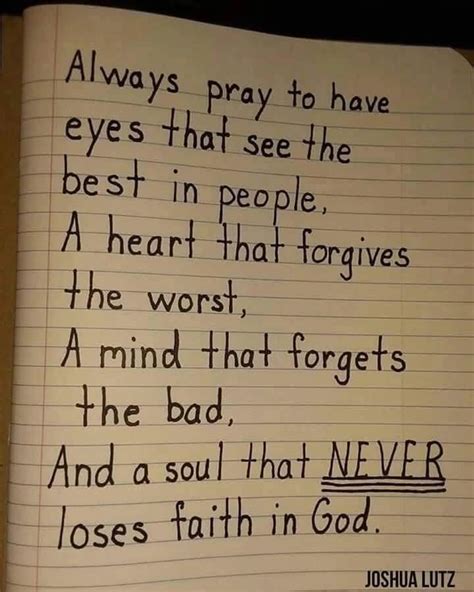 Always pray to have
eyes that see the
best in people,
A heart that forgives
the worst,
A mind that forgets
the bad,
And a soul that NEVER
loses faith in God.
JOSHUA LUTZ